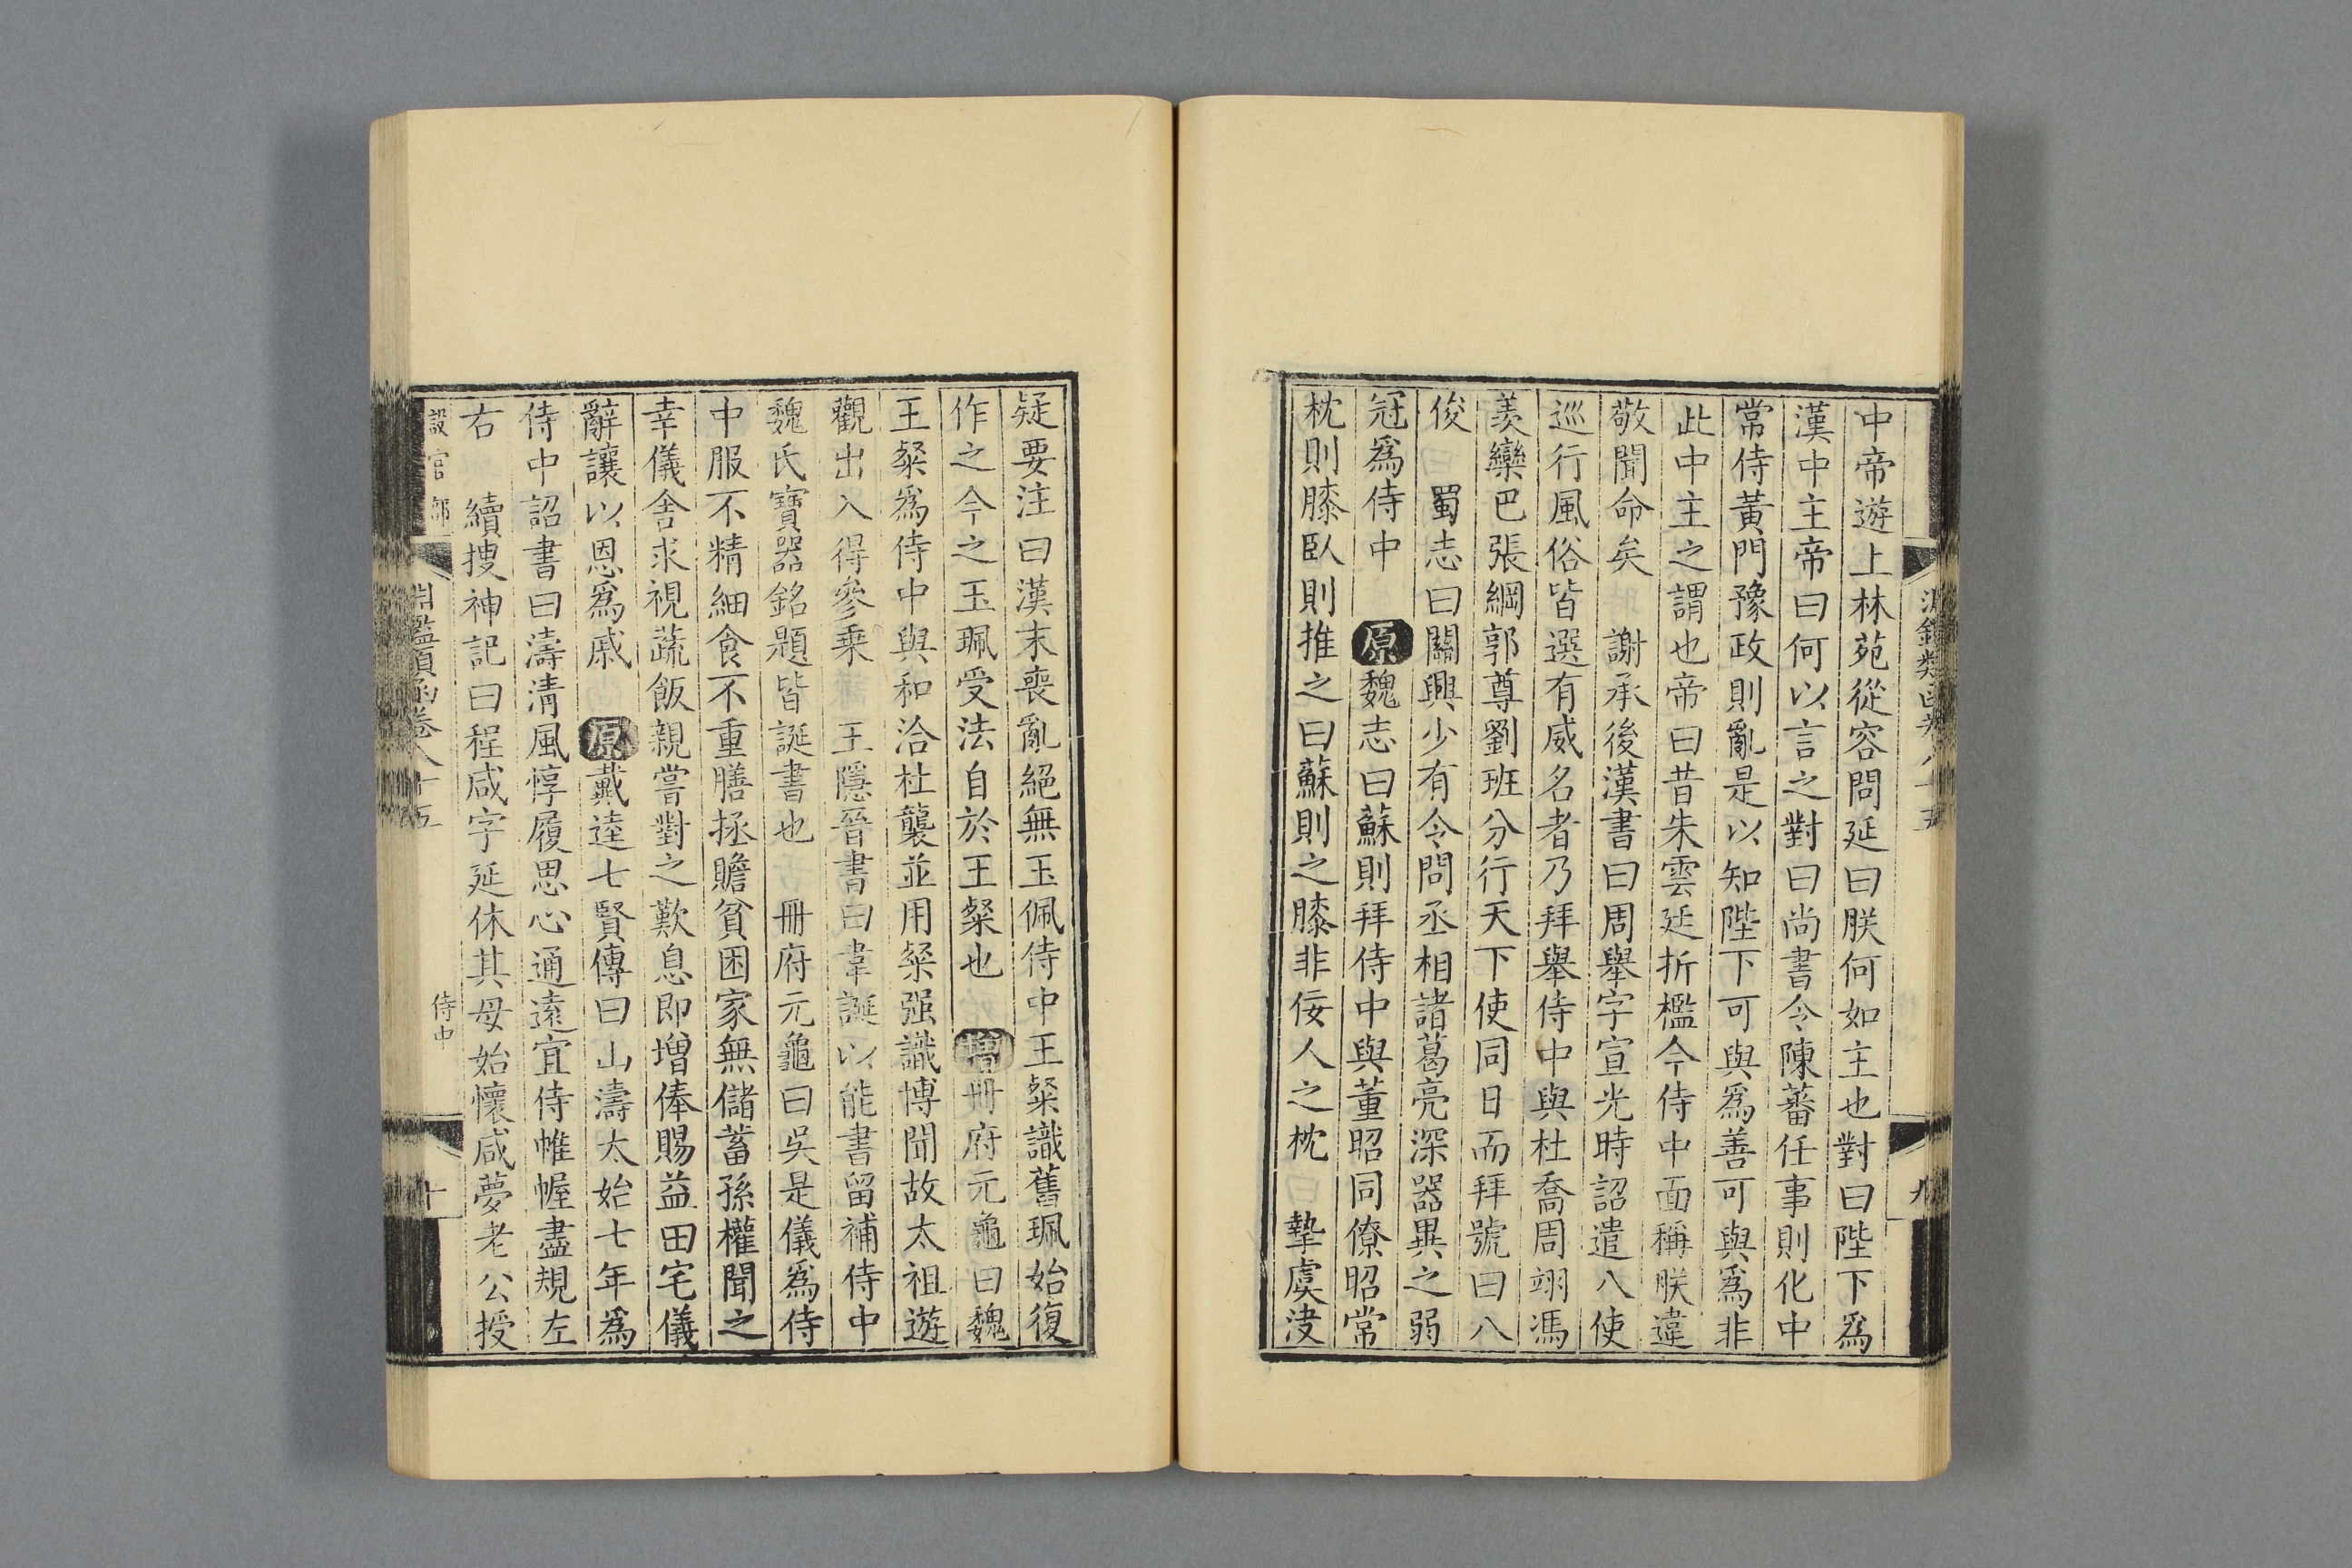 中帝遊上林苑從容問延曰朕何如主也對曰陛下爲
漢中主帝曰何以言之對曰尚書令陳蕃任事則化中
常侍黃門豫政則亂是以知陛下可與爲善可與爲非
此中主之謂也帝曰昔朱雲延折檻今侍中面稱朕違
敬聞命矣　謝承後漢書曰周舉字宣光時詔遣八使
巡行風俗皆選有威名者乃拜舉侍中與杜喬周翊馮
羨欒巴張綱郭尊劉班分行天下使同日而拜號曰八
俊　蜀志曰關興少有令問丞相諸葛亮深器異之弱
冠爲侍中　原魏志曰蘇則拜侍中與董昭同僚昭常
枕則膝臥則推之曰蘇則之膝非佞人之枕　摯虞決
淵鑑類函卷八十五
九
疑要注曰漢末喪亂絕無玉佩侍中王粲識舊珮始復
作之今之玉珮受法自於王粲也　增冊府元龜曰魏
王粲爲侍中與和洽杜襲並用粲强識博聞故太祖遊
觀出入得參乗　王隱晉書曰韋誕以能書留補侍中
魏氏寶器銘題皆誕書也　冊府元龜曰吳是儀爲侍
中服不精細食不重膳拯贍貧困家無儲蓄孫權聞之
幸儀舍求視蔬飯親嘗對之歎息即增俸賜益田宅儀
辭讓以恩爲戚　原戴逵七賢傳曰山濤太始七年爲
侍中詔書曰濤清風惇履思心通遠宜侍帷幄盡規左
右　續搜神記曰程咸字延休其母始懷咸夢老公授
設官部
淵鑑類函卷八十五
侍中
十